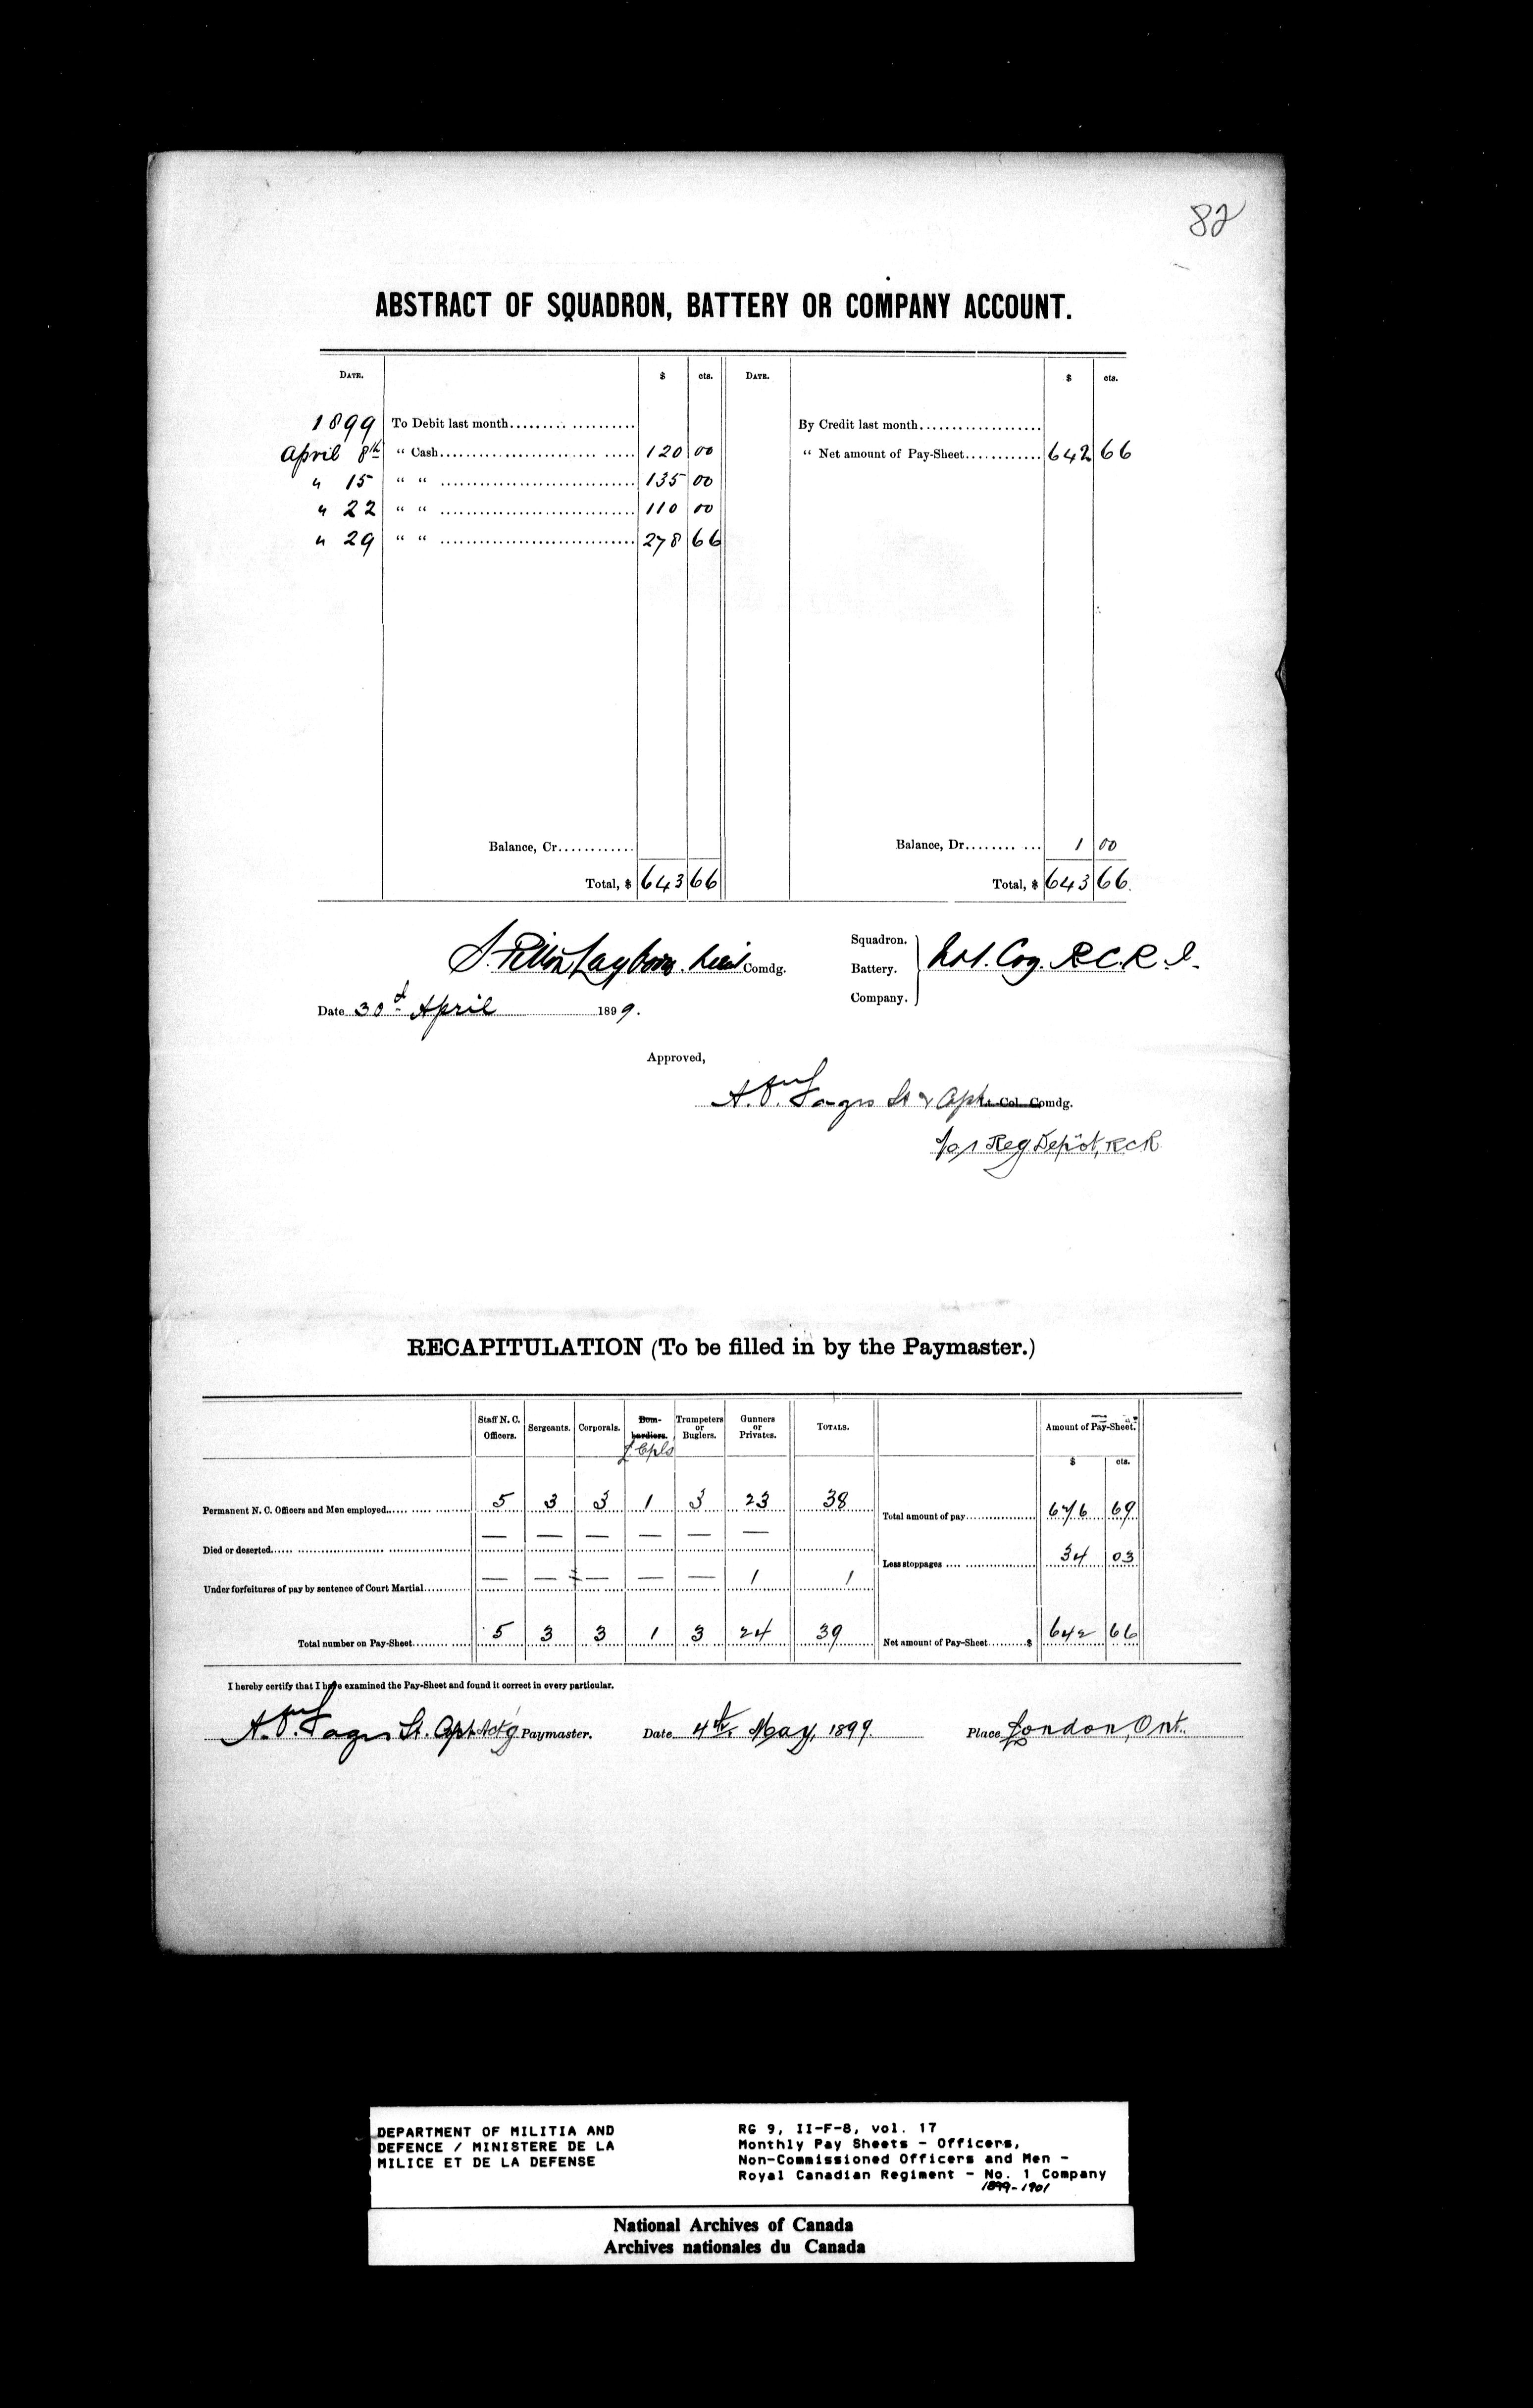 82
ABSTRACT OF SQUADRON, BATTERY OR COMPANY ACCOUNT.
DATE. $ cts. DATE. $ cts.
1899 To Debit last month By Credit last month
April 8th " Cash 120 00 " Net amount of Pay-Sheet 642 66
" 15 " " 135 00
" 22 " " 110 00
" 29 " " 278 66
Balance, Cr. Balance, Dr. 1 00
Total, $ 643 66 Total, $ 643 66
Comdg. Squadron. Battery. Company. No 1. Coy. R.C.R.I.
Date 30th April 1899.
Approved,
A. St & Capt Lt. Col. Comdg.
No 1 Reg Depôt, RCR
RECAPITULATION (To be filled in by the Paymaster.)
Staff N. C. Officers. Sergeants. Corporals. Bombardiers. L Cpls Trumpeters or Buglers. Gunners or Privates. TOTALS. Amount of Pay-Sheet.
$ cts.
Permanent N. C. Officers and Men employed 5 3 3 1 3 23 38 Total amount of pay 676 69
Died or deserted — — — — — — Less stoppages 34 03
Under forfeitures of pay by sentence of Court Martial — — — — — 1 1
Total number on Pay-Sheet 5 3 3 1 3 24 39 Net amount of Pay-Sheet $ 642 66
I hereby certify that I have examined the Pay-Sheet and found it correct in every particular.
A. Capt Actg Paymaster. Date 4th May, 1899. Place London, Ont.
DEPARTMENT OF MILITIA AND
DEFENCE / MINISTERE DE LA
MILICE ET DE LA DEFENSE
RG 9, II-F-8, vol. 17
Monthly Pay Sheets - Officers,
Non-Commissioned Officers and Men -
Royal Canadian Regiment - No. 1 Company
1899-1901
National Archives of Canada
Archives nationales du Canada